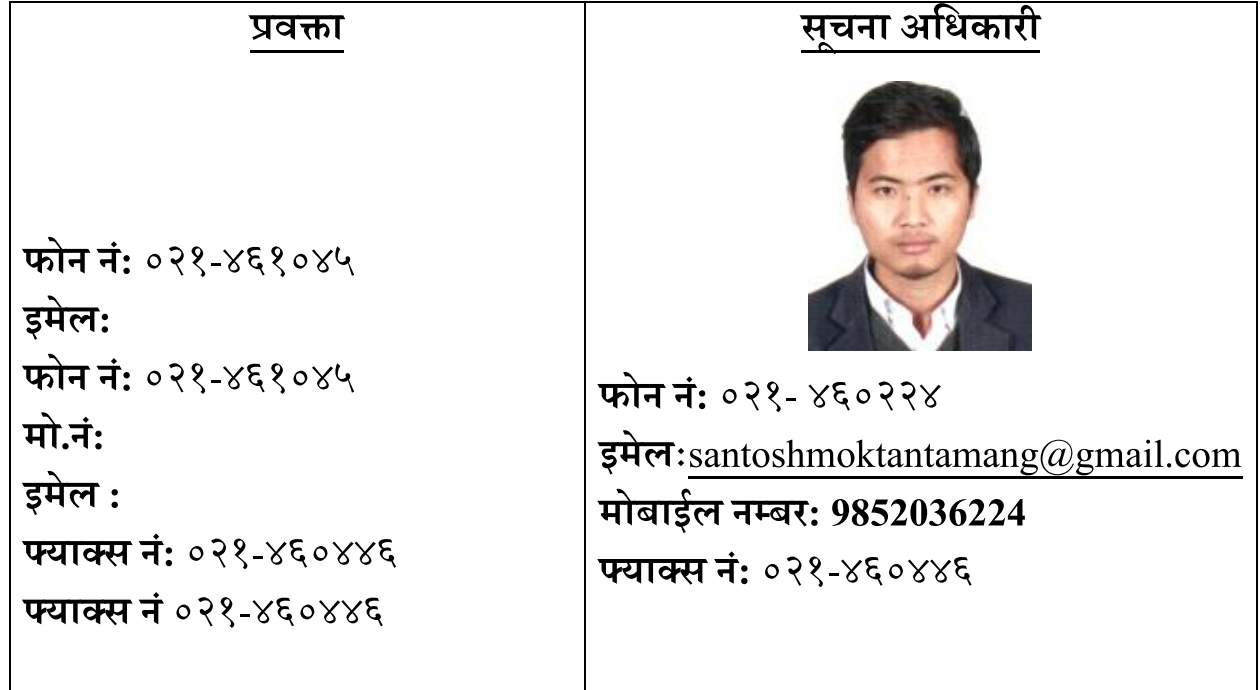 प्रवक्ता
फोन नं: ०२१-४६१०४५
इमेल:
फोन नं: ०२१-४६१०४५
मो.नं:
इमेल :
फ्याक्स नं: ०२१-४६०४४६
फ्याक्स नं ०२१-४६०४४६
सूचना अधिकारी
फोन नं: ०२१- ४६०२२४
इमेलः santoshmoktantamang@gmail.com
मोबाईल नम्बर: 9852036224
फ्याक्स नं: ०२१-४६०४४६